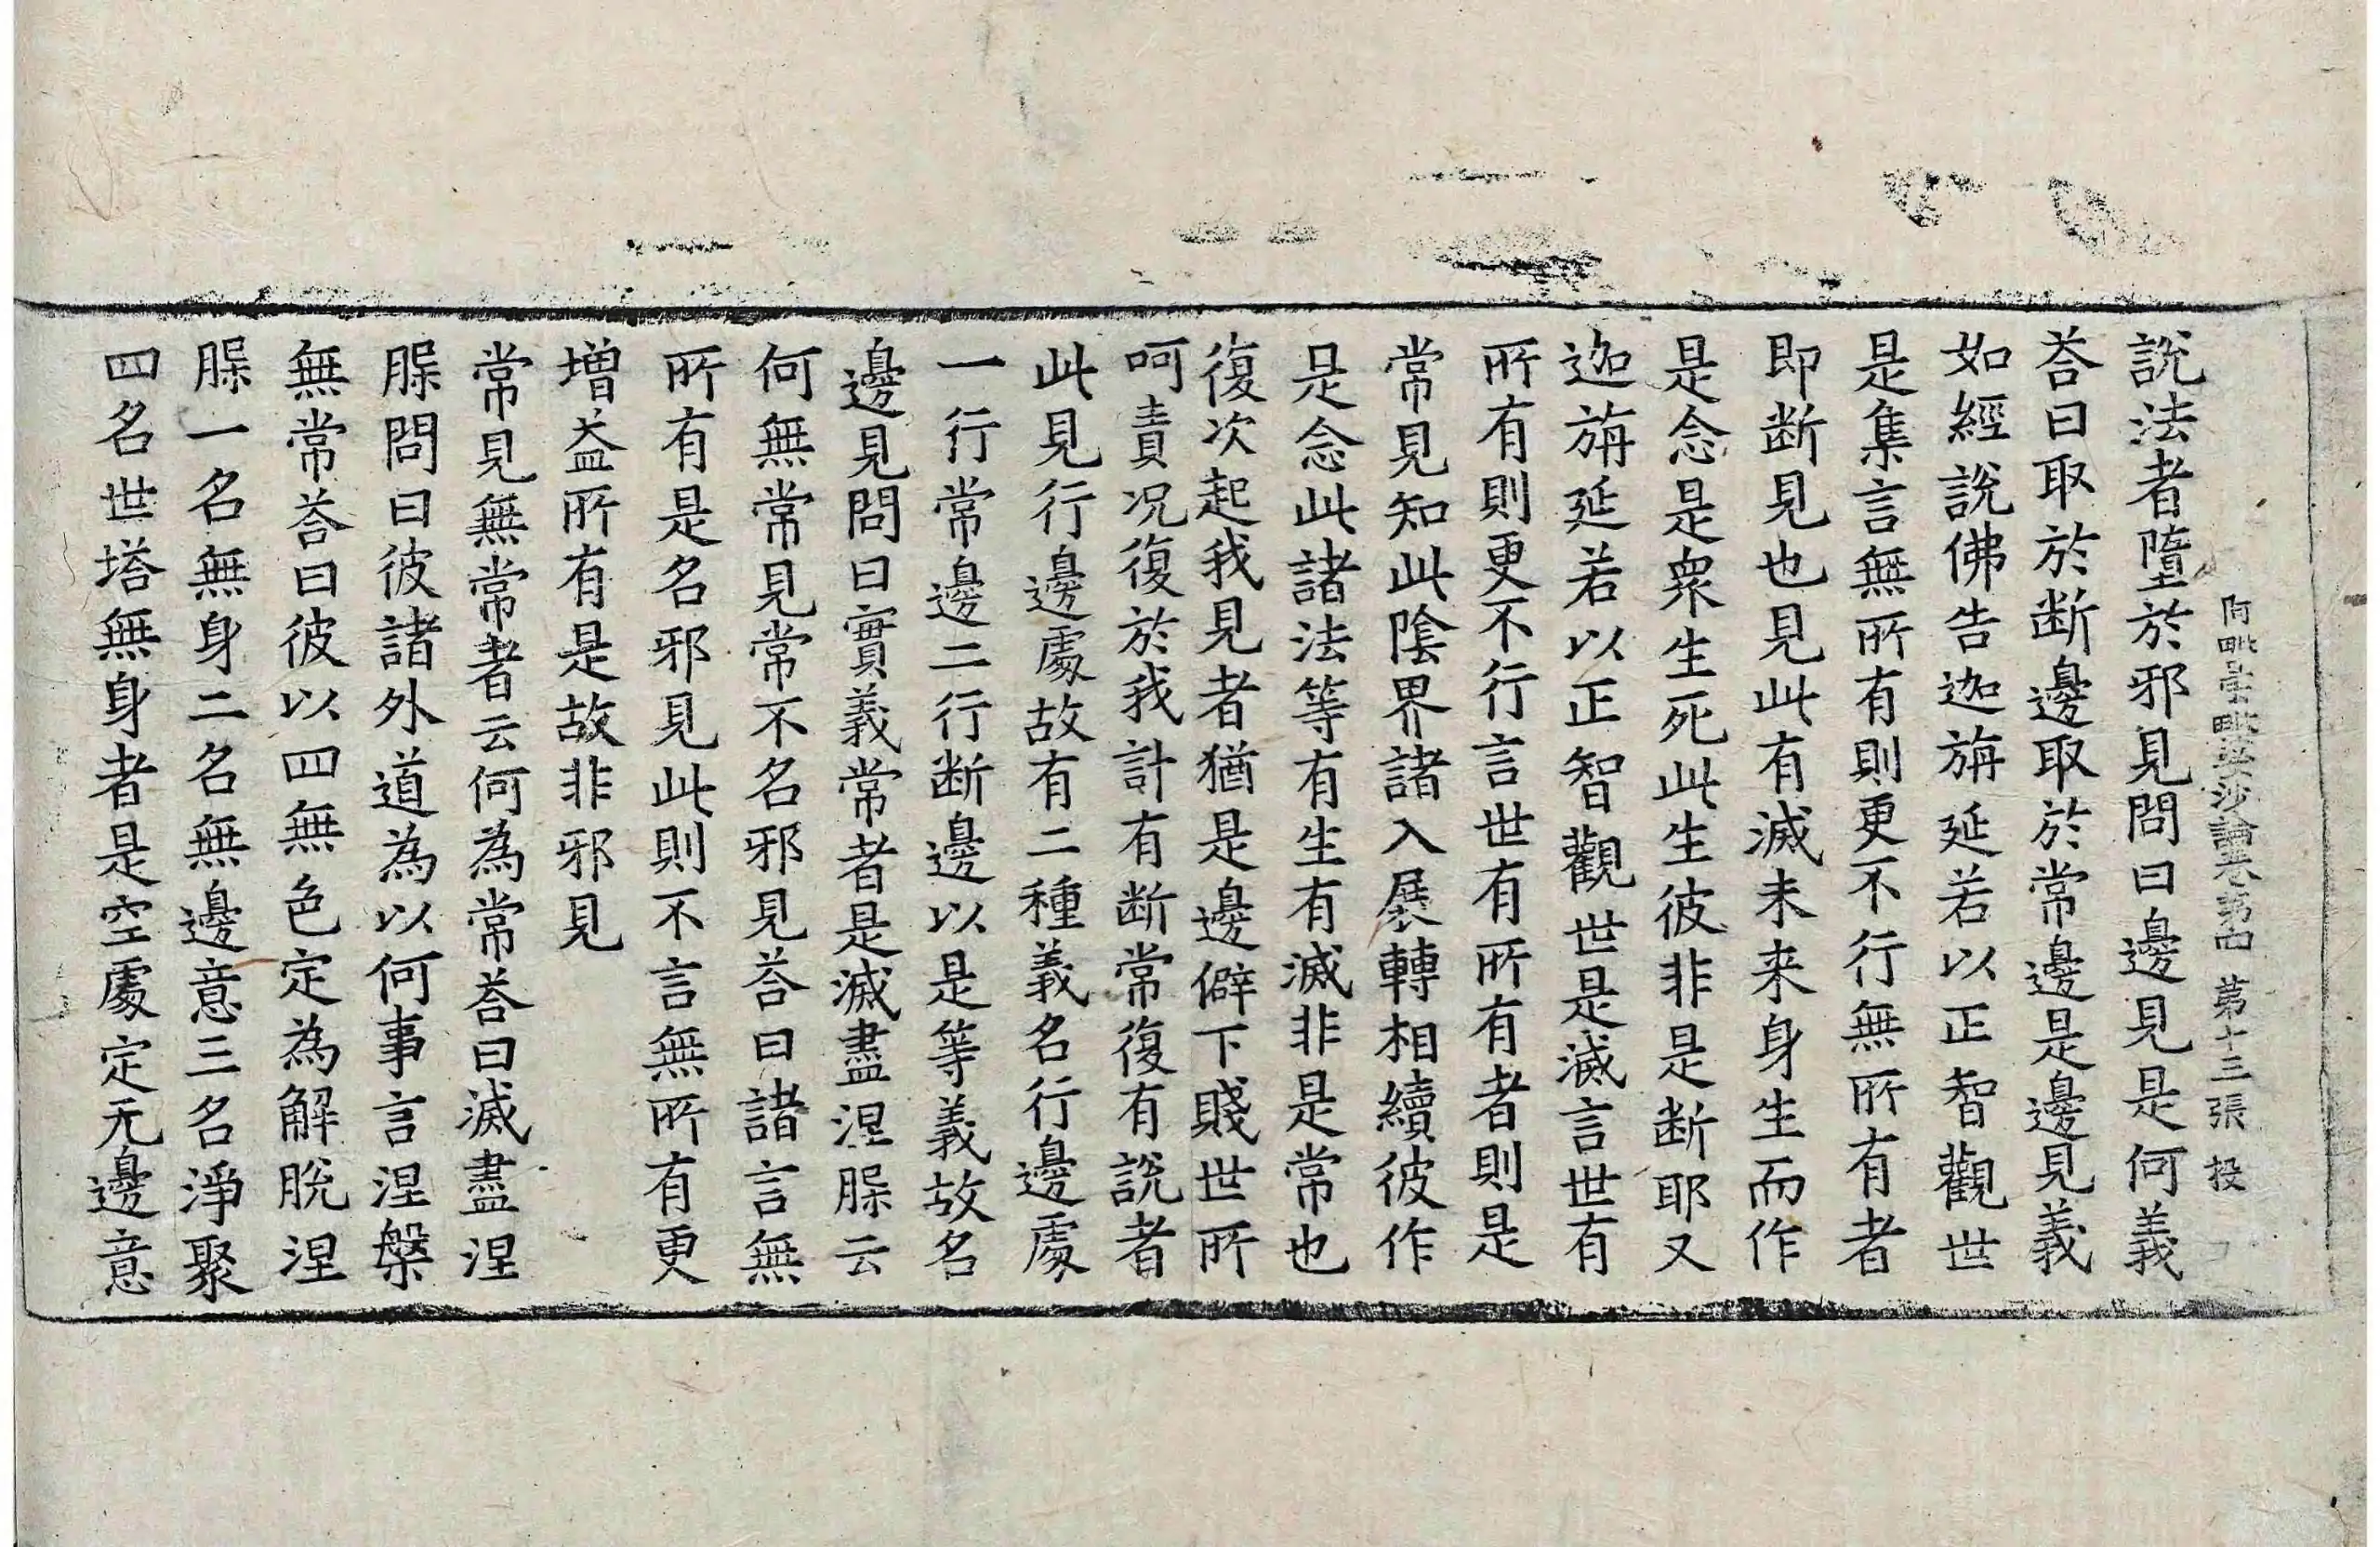 阿毗曇毗婆沙論卷第四　第十三張　投
說法者墮於邪見問曰邊見是何義
荅曰取於断邊取於常邊是邊見義
如經說佛告迦旃延若以正智觀世
是集言無所有則更不行無所有者
即断見也見此有滅未来身生而作
是念是衆生死此生彼非是断耶又
迦旃延若以正智觀世是滅言世有
所有則更不行言世有所有者則是
常見知此陰界諸入展轉相續彼作
是念此諸法等有生有滅非是常也
復次起我見者猶是邊僻下賤世所
呵責况復於我計有断常復有說者
此見行邊處故有二種義名行邊處
一行常邊二行断邊以是等義故名
邊見問曰實義常者是滅盡涅槃云
何無常見常不名邪見荅曰諸言無
所有是名邪見此則不言無所有更
增益所有是故非邪見
常見無常者云何為常荅曰滅盡涅
槃問曰彼諸外道為以何事言涅槃
無常荅曰彼以四無色定為解脫涅
槃一名無身二名無邊意三名淨聚
四名世塔無身者是空處定无邊意